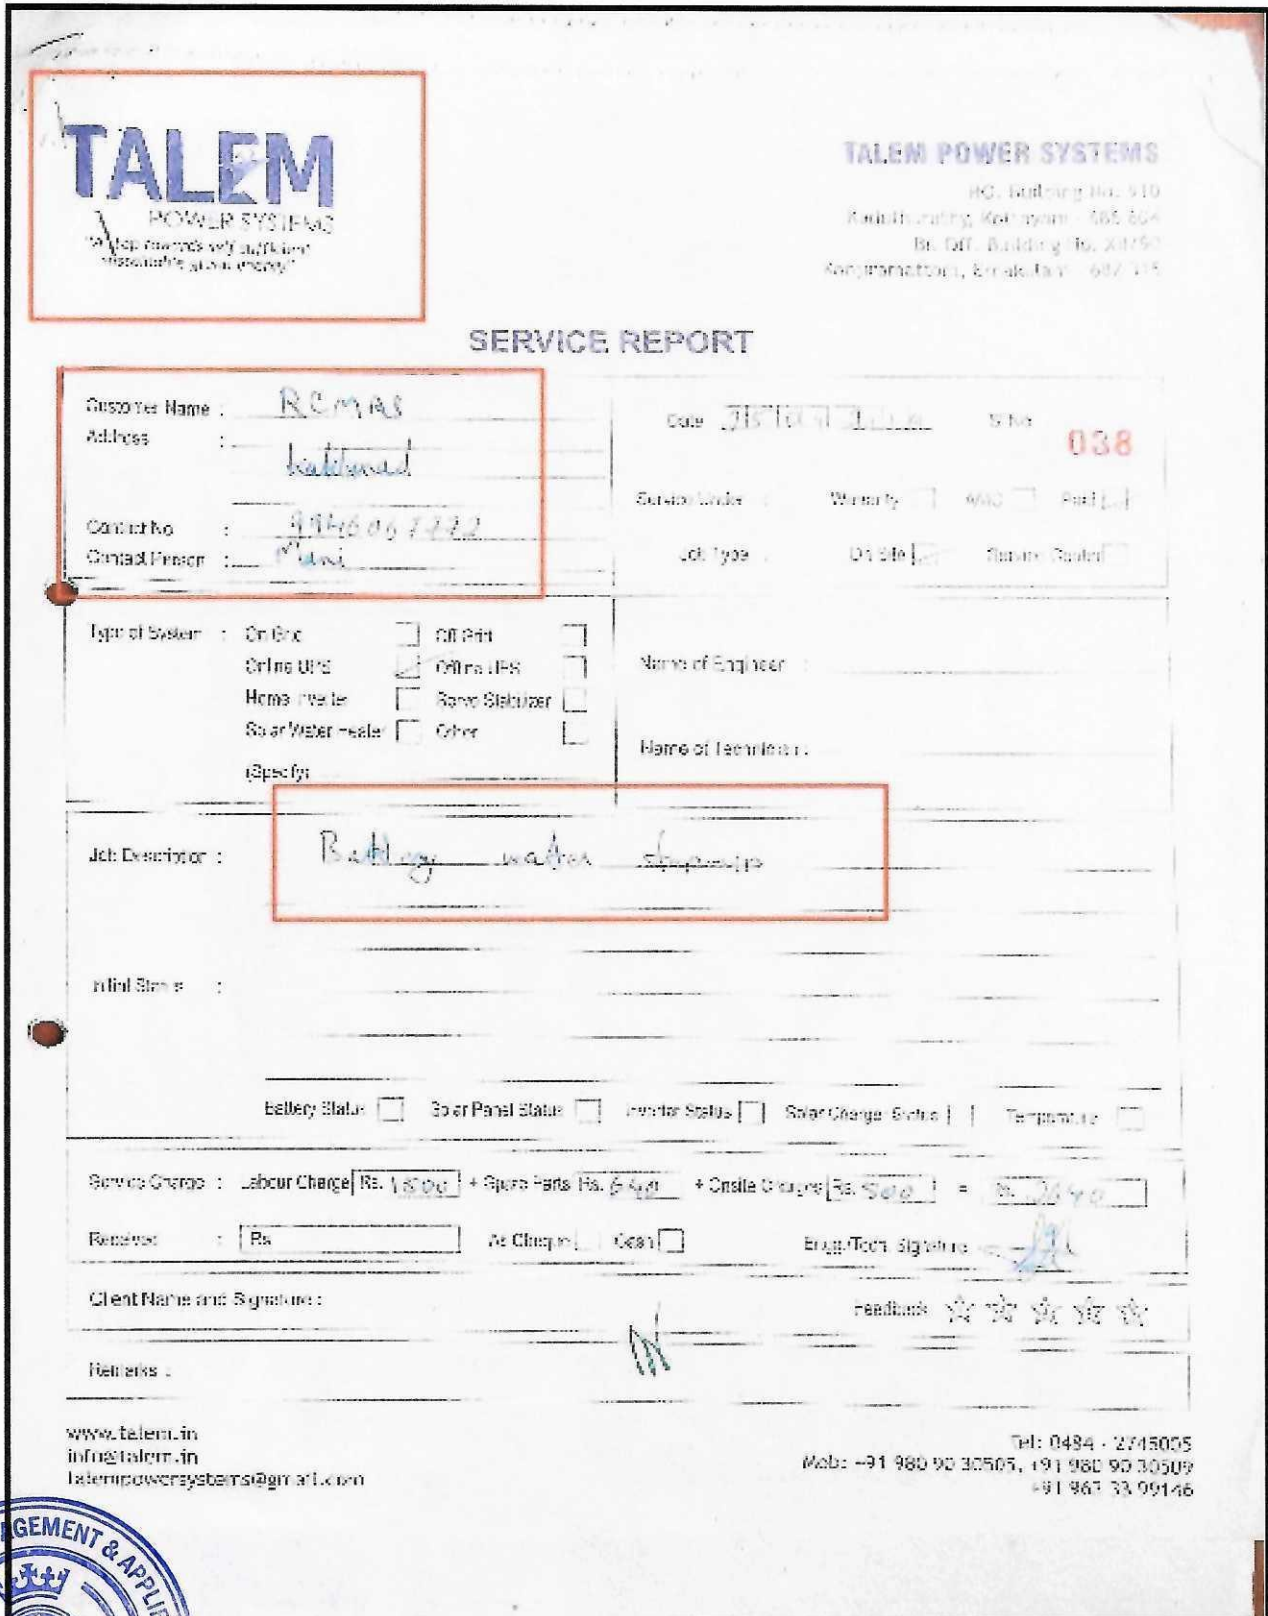 TALEM
POWER SYSTEMS
TALEM POWER SYSTEMS
SERVICE REPORT
Customer Name : RCMAS
Address :
Contact No :
Contact Person : Mani
Date
S No
038
Service Under : Warranty AMC Paid
Job Type : On Site Service Center
Type of System : On Grid Off Grid
Online UPS Offline UPS
Home Inverter Servo Stabilizer
Solar Water Heater Other
(Specify)
Name of Engineer :
Name of Technician :
Job Description : Battery water
Initial Status :
Battery Status Solar Panel Status Inverter Status Solar Charger Status Temperature
Service Charge : Labour Charge Rs. 1500 + Spare Parts Rs. 640 + Onsite Charges Rs. 500 = Rs. 2640
Received : Rs As Cheque Cash Engg./Tech. Signature
Client Name and Signature :
Feedback
Remarks :
www.talem.in
info@talem.in
talempowersystems@gmail.com
Tel: 0484 - 2745005
Mob: +91 980 90 30505, +91 980 90 30509
+91 963 33 99146
AGEMENT & APPLI